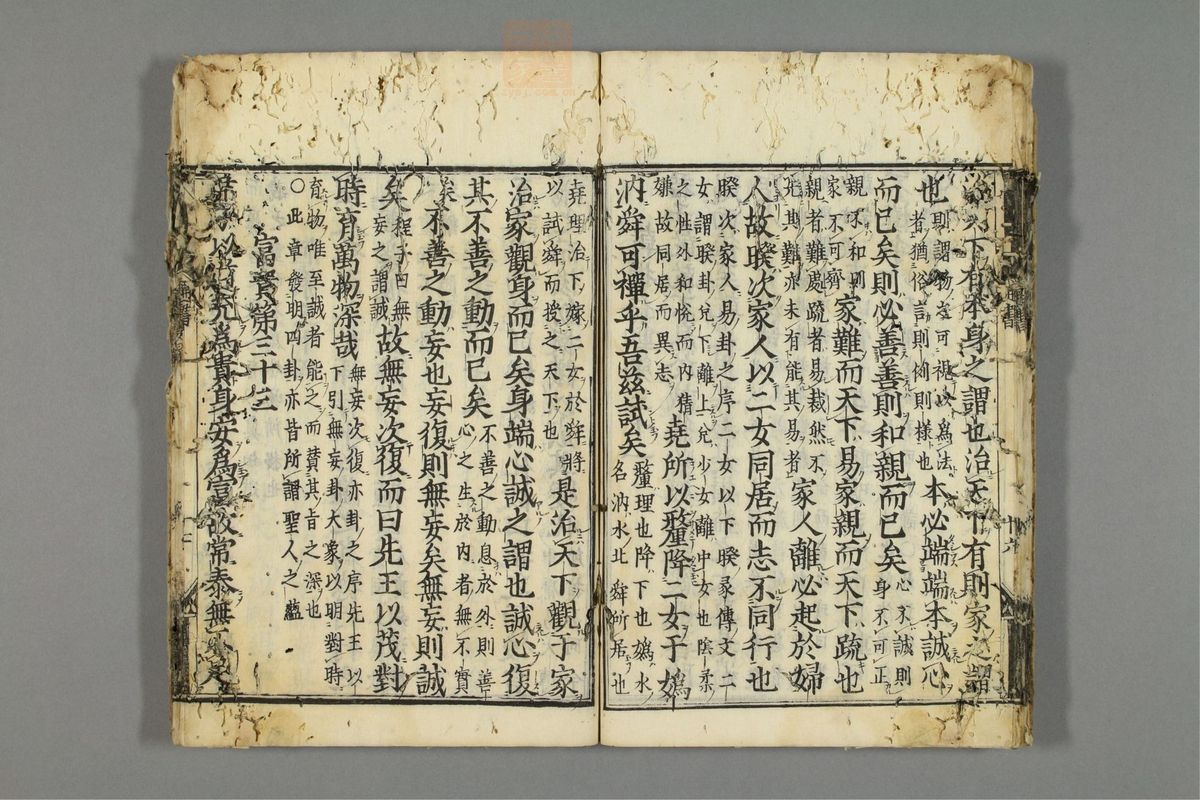 治天下有本身之謂也治天下有則家之謂
也則謂物之可視以爲法者猶俗言則例則樣也本必端端本誠心
而已矣則必善善則和親而已矣心不誠則身不可正
親不和則家不可齊家難而天下易家親而天下疏也
親者難處疏者易裁然不先其難亦未有能其易者家人離必起於婦
人故睽次家人以二女同居而志不同行也
睽次家人易卦之序二女以下睽彖傳文二女謂睽卦兌下離上兌少女離中女也陰柔
之性外和悅而內猜嫌故同居而異志堯所以釐降二女于嬀
汭舜可禪乎吾茲試矣釐理也降下也嬀水名汭水北舜所居也
堯理治下嫁二女於舜將以試舜而授之天下也是治天下觀于家
治家觀身而已矣身端心誠之謂也誠心復
其不善之動而已矣不善之動息於外則善心之生於內者無不實
矣不善之動妄也妄復則無妄矣無妄則誠
矣程子曰無妄之謂誠故無妄次復而曰先王以茂對
時育萬物深哉無妄次復亦卦之序先王以下引無妄卦大象以明對時
育物唯至誠者能之而贊其旨之深也○此章發明四卦亦皆所謂聖人之蘊
富貴第三十三
君子以道充爲貴身安爲富故常泰無不足